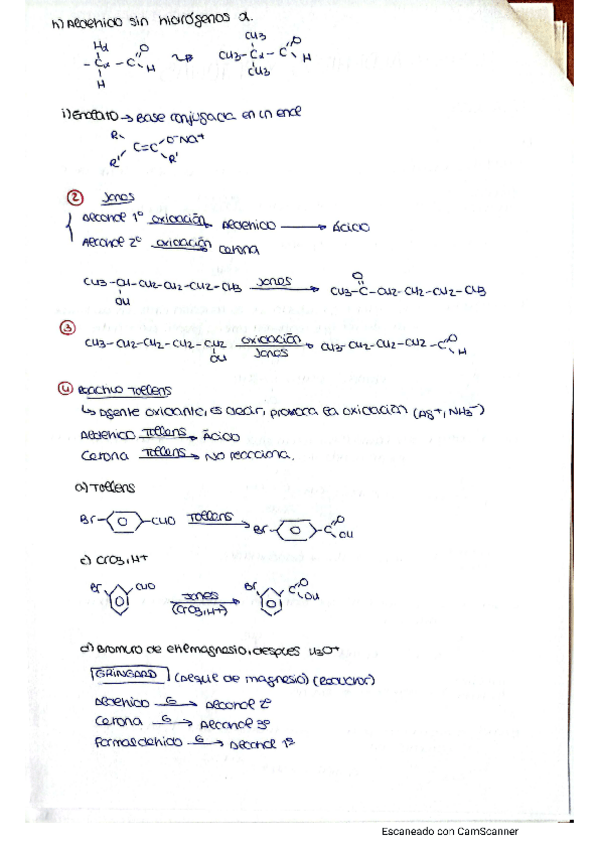 h) Aldehido sin hidrógenos α.
Hα O CH3 O
- Cα - C H CH3 - Cα - C H
H CH3
i) Enolato → Base conjugada en un enol
R O⁻Na+
C=C
R' R'
② Jones
Alcohol 1º oxidación Aldehido → Ácido
Alcohol 2º oxidación Cetona
CH3-CH-CH2-CH2-CH2-CH3 Jones → CH3-C-CH2-CH2-CH2-CH3
OH O
③ CH3-CH2-CH2-CH2-CH2 oxidación Jones → CH3-CH2-CH2-CH2-C O H
OH
④ Reactivo Tollens
↳ Agente oxidante, es decir, provoca la oxidación (Ag+, NH3⁻)
Aldehido Tollens → Ácido
Cetona Tollens → No reacciona.
a) Tollens
Br- -CHO Tollens → Br- -C O OH
c) CrO3, H+
Br CHO Jones (CrO3, H+) → Br C O OH
d) Bromuro de etilmagnesio, después H3O+
GRINGARD (Acque de magnesio) (reductor)
Aldehido G → Alcohol 2º
Cetona G → Alcohol 3º
Formaldehido G → Alcohol 1º
Escaneado con CamScanner